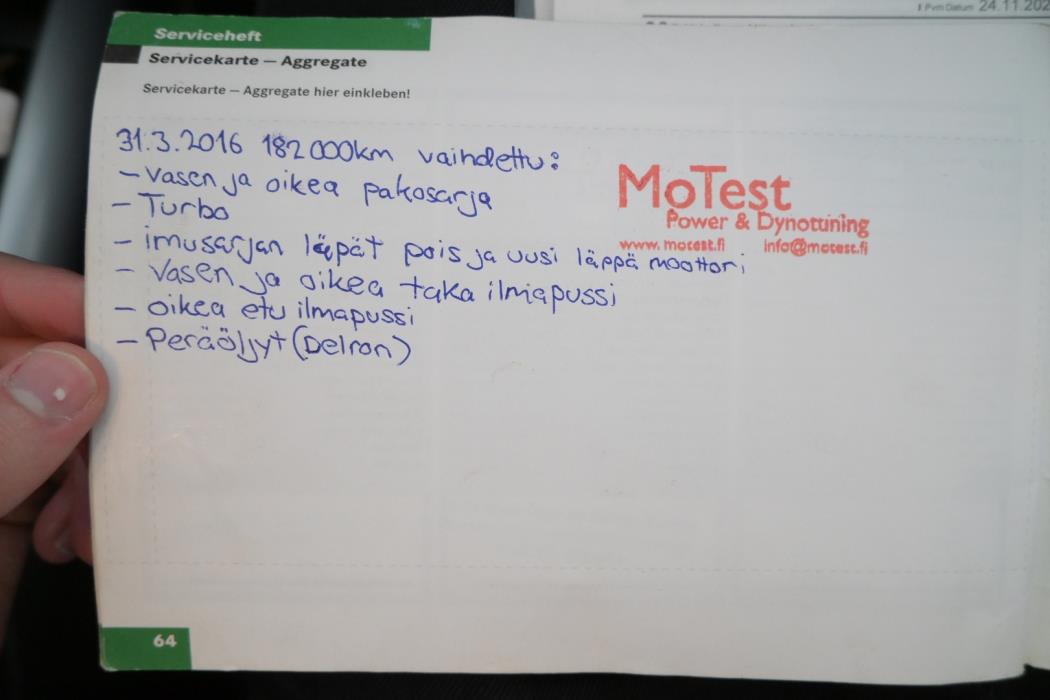 Pvm Datum 24.11.202
Serviceheft
Servicekarte — Aggregate
Servicekarte — Aggregate hier einkleben!
31.3.2016 182000km vaihdettu:
- Vasen ja oikea pakosarja
- Turbo
- imusarjan läpät pois ja uusi läppä moottori
- Vasen ja oikea taka ilmapussi
- oikea etu ilmapussi
- Peräöljyt (Delron)
MoTest
Power & Dynotuning
www. motest.fi info@motest.fi
64